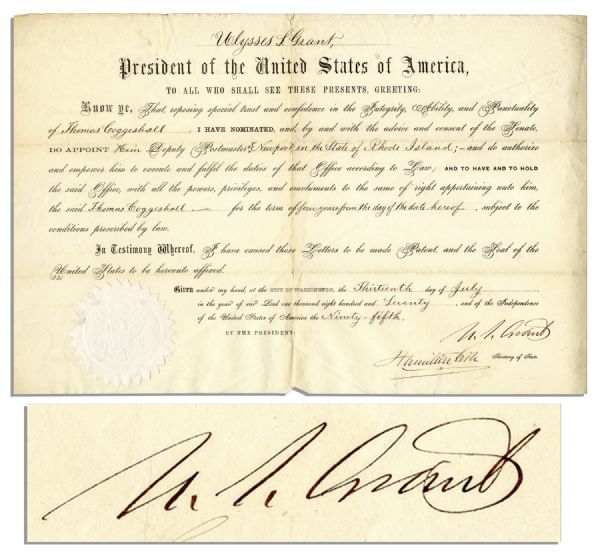 Ulysses S. Grant,
President of the United States of America,
TO ALL WHO SHALL SEE THESE PRESENTS, GREETING:
Know ye, That, reposing special trust and confidence in the Integrity, Ability, and Punctuality
of Thomas Coggeshall, I HAVE NOMINATED, and, by and with the advice and consent of the Senate,
DO APPOINT Him Deputy Postmaster at Newport in the State of Rhode Island; and do authorize
and empower him to execute and fulfil the duties of that Office according to Law; AND TO HAVE AND TO HOLD
the said Office, with all the powers, privileges, and emoluments to the same of right appertaining unto him,
the said Thomas Coggeshall for the term of four years from the day of the date hereof, subject to the
conditions prescribed by law.
In Testimony Whereof, I have caused these Letters to be made Patent, and the Seal of the
United States to be hereunto affixed.
Given under my hand, at the CITY OF WASHINGTON, the Thirteenth day of July
in the year of our Lord one thousand eight hundred and Seventy, and of the Independence
of the United States of America the Ninety-fifth.
BY THE PRESIDENT:
U. S. Grant
Hamilton Fish Secretary of State.
U. S. Grant